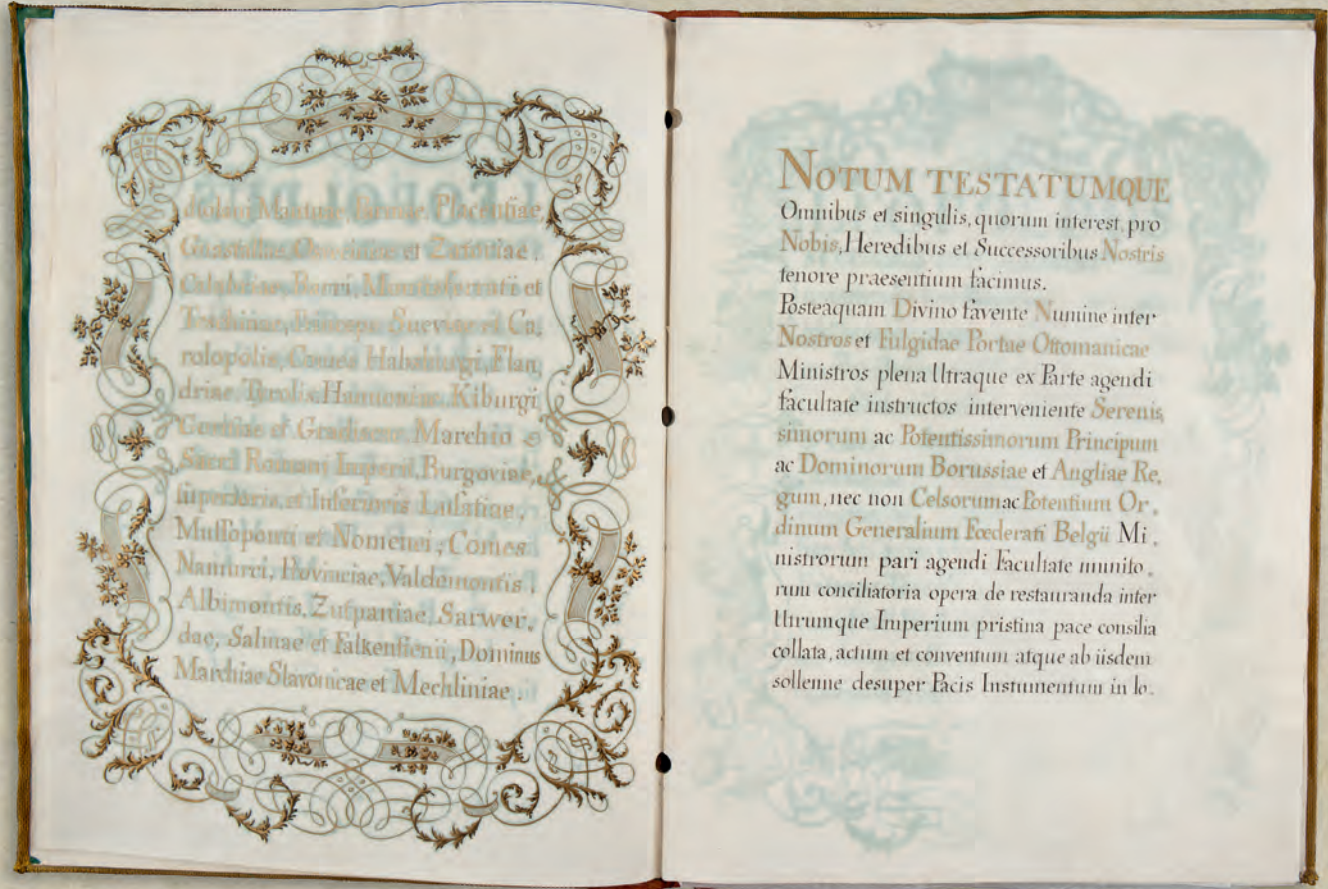 diolani, Mantuae, Parmae, Placentiae,
Guastallae, Osveciniae et Zatoriae,
Calabriae, Barri, Montisferrati et
Teschinae, Princeps Sueviae et Ca,
rolopolis, Comes Habsburgi, Flan,
driae, Tyrolis, Hannoniae, Kiburgi,
Goritiae et Gradiscae, Marchio
Sacri Romani Imperii, Burgoviae,
superioris, et Inferioris Lusatiae,
Mussoponti et Nomenei, Comes
Namurci, Provinciae, Valdemontis,
Albimontis, Zutpaniae, Sarwer,
dae, Salmae et Falkenstenii, Dominus
Marchiae Slavonicae et Mechliniae.
NOTUM TESTATUMQUE
Omnibus et singulis, quorum interest, pro
Nobis, Heredibus et Successoribus Nostris
tenore praesentium facimus.
Posteaquam Divino favente Numine inter
Nostros et Fulgidae Portae Ottomanicae
Ministros plena Utraque ex Parte agendi
facultate instructos interveniente Serenis,
simorum ac Potentissimorum Principum
ac Dominorum Borussiae et Angliae Re,
gum, nec non Celsorum ac Potentium Or,
dinum Generalium Fœderati Belgii Mi,
nistrorum pari agendi Facultate munito,
rum conciliatoria opera de restauranda inter
Utrumque Imperium pristina pace consilia
collata, actum et conventum atque ab iisdem
sollenne desuper Pacis Instumentum in lo,